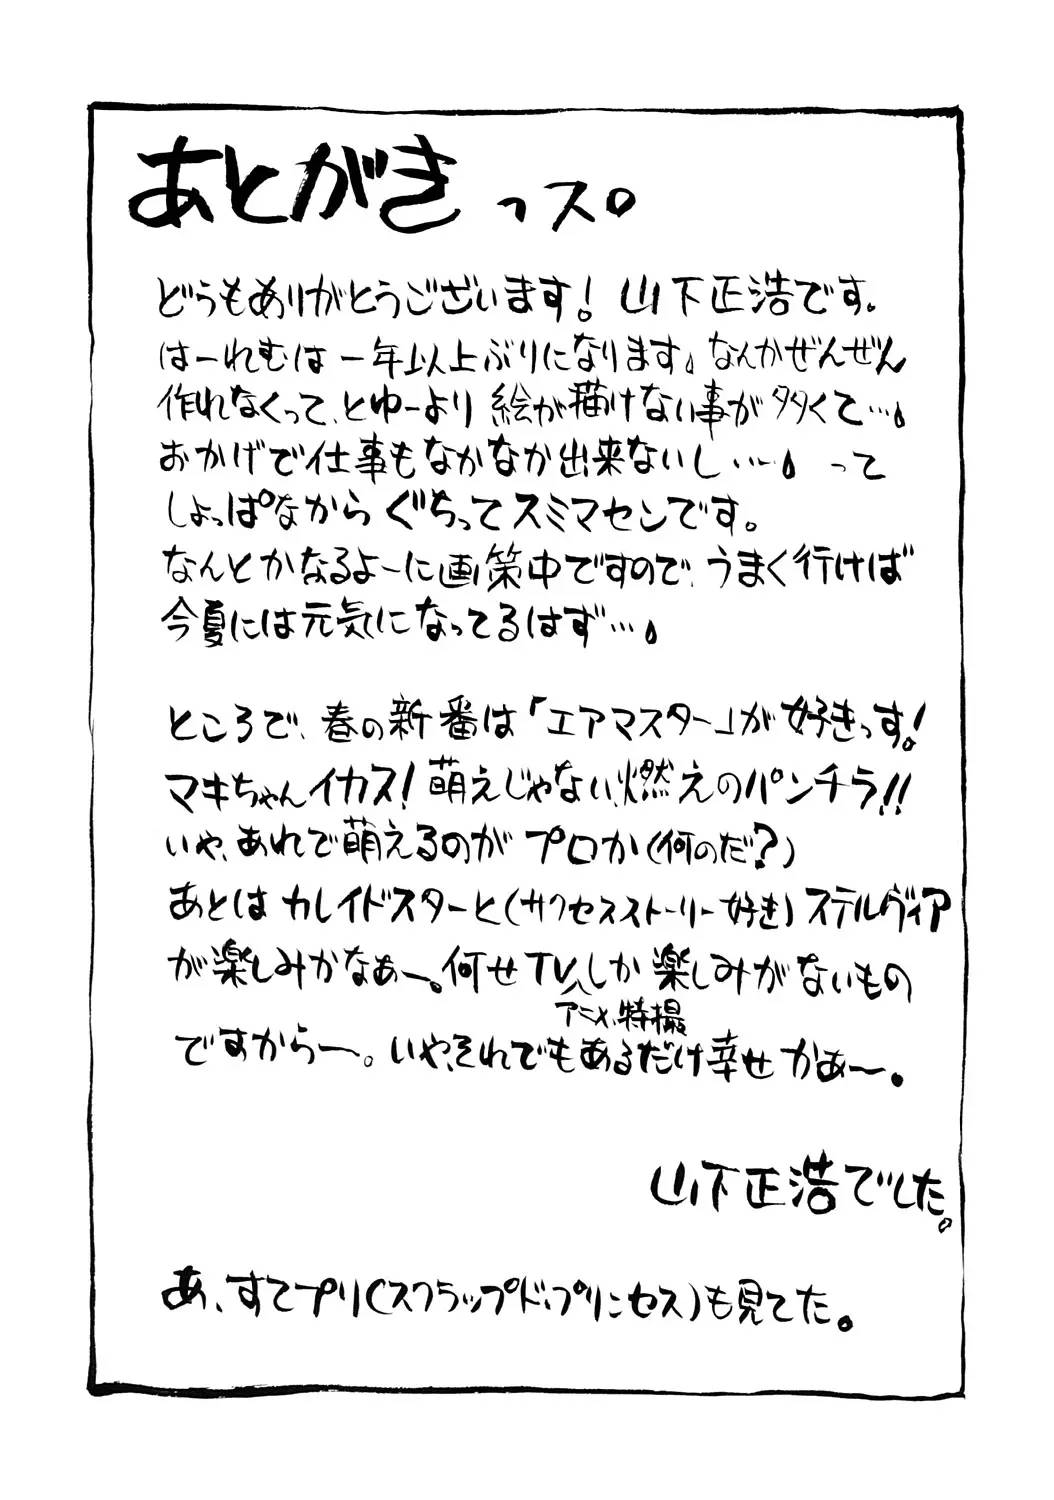 あとがきっス。
どうもありがとうございます！山下正浩です。
はーれむは一年以上ぶりになります。なんかぜんぜん
作れなくって、とゆーより絵が描けない事が多くて…。
おかげで仕事もなかなか出来ないし…。って
しょっぱなからぐちってスミマセンです。
なんとかなるよーに画策中ですので、うまく行けば
今夏には元気になってるはず…。
ところで、春の新番は「エアマスター」が好きっす！
マキちゃんイカス！萌えじゃない、燃えのパンチラ!!
いや、あれで萌えるのがプロか（何のだ？）
あとはカレイドスターと（サクセスストーリー好き）ステルヴィア
が楽しみかなぁー。何せTVしか楽しみがないもの
アニメ、特撮
ですからー。いや、それでもあるだけ幸せかぁ〜。
山下正浩でした。
あ、すてプリ（スクラップド・プリンセス）も見てた。